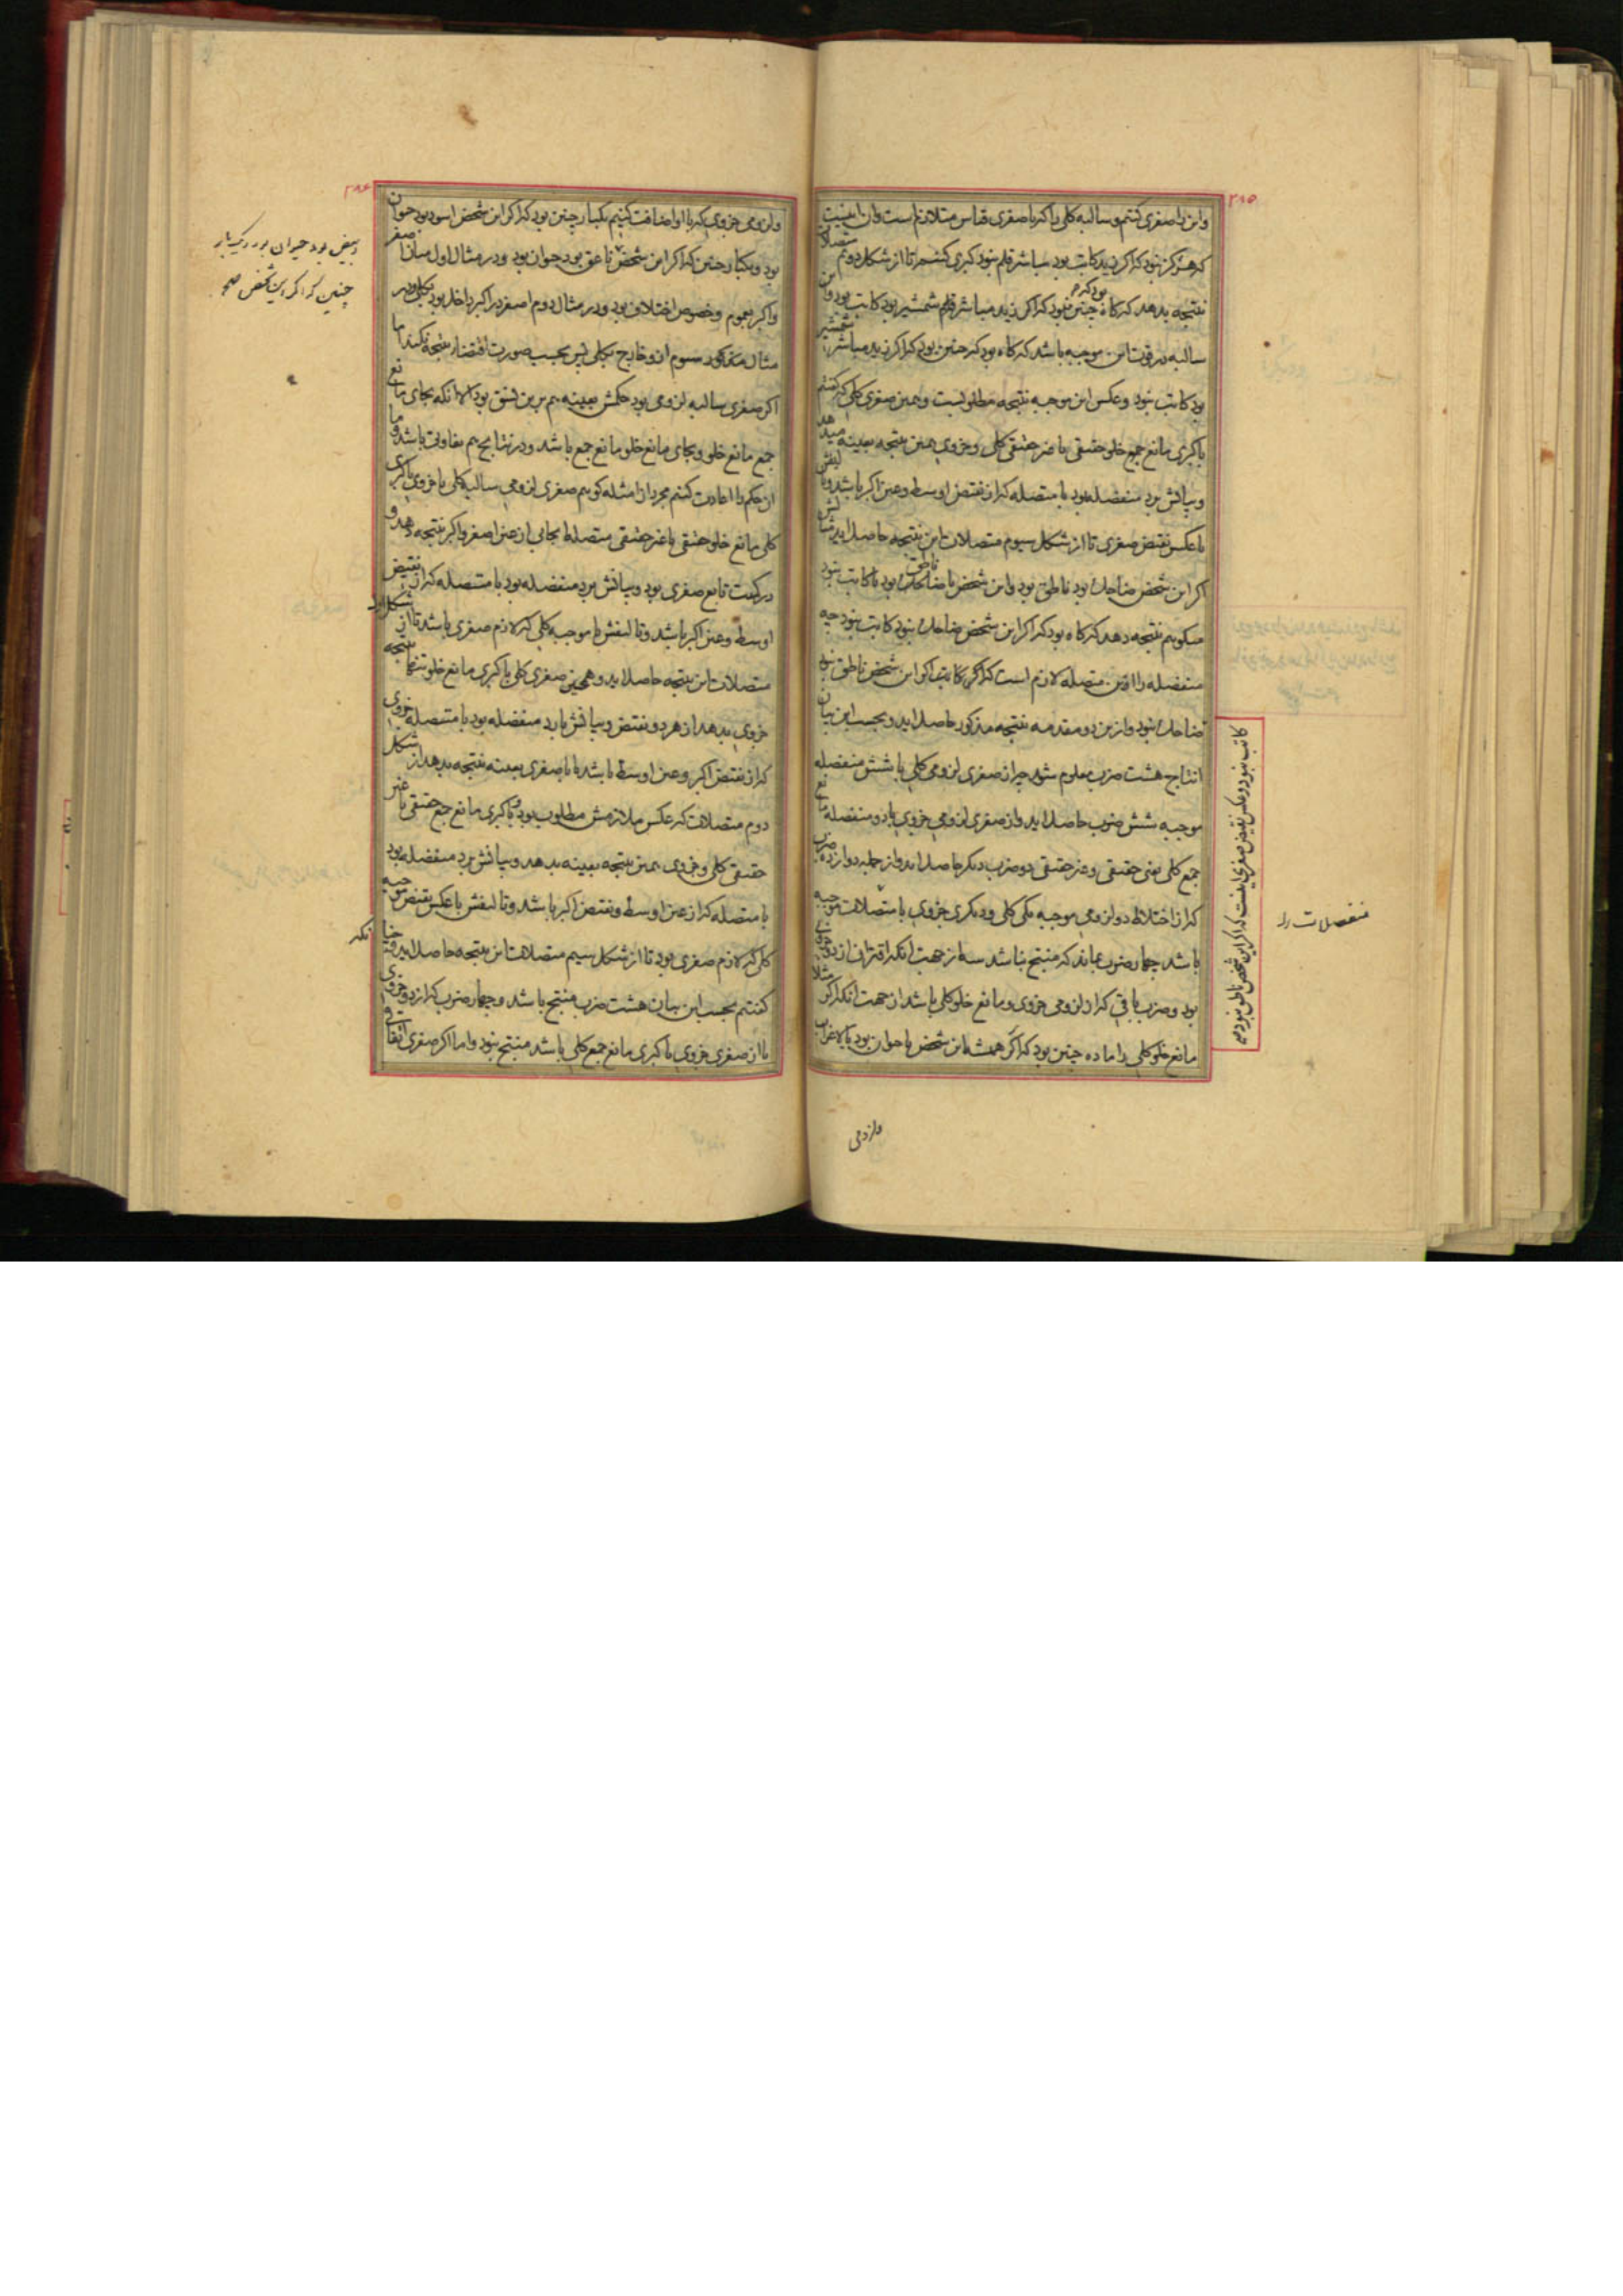 ۲۸۵
واین را صغری کنیم و سالبه کلی با کبریا صغری قیاس متلازم است وان اینست
که هرگز نبود که اکر زید کاتب بود مباشر قلم نبود کبری کنیم تا از شکل دوم متصلات
نتیجه بدهد که کاه بود که چنین نبود که اکر زید مباشر قلم شمشیر بود کاتب بود واین
سالبه در قوت این موجبه باشد که کاه بود که چنین بود که اکر زید مباشر شمشیر
بود کاتب نبود وعکس این موجبه نتیجه مطلوبست وهمین صغری کلی که کفتیم
با کبری مانع جمع خلو حقیقی یا غیر حقیقی کلی وجزوی همین نتیجه بعینه میدهد
وبیانش برد منفصله بود با متصله که از نقیض اوسط وعین اکبر باشد وتالیفش
با عکس نقیض صغری تا از شکل سیوم متصلات این نتیجه حاصل اید مثالش
اکر این شخص ضاحک بود ناطق بود واین شخص یا ناطق بود یا کاتب نبود
میکویم نتیجه دهد که کاه بود که اکر این شخص ضاحک نبود کاتب نبود چه
منفصله را این متصله لازم است که اکر کاتب اکر این شخص ناطق نبود
ضاحک نبود وازین دو مقدمه نتیجه مذکور حاصل اید وبحسب این بیان
انتاج هشت ضرب معلوم شود چه از صغری لزومی کلی با شش منفصله
موجبه شش ضرب حاصل اید واز صغری لزومی جزوی با دو منفصله مانع
جمع کلی یعنی حقیقی وغیر حقیقی دو ضرب دیکر حاصل اید واز جمله دوازده ضرب
که از اختلاط دو لزومی موجبه یکی کلی ودیکری جزوی با متصلات موجبه
باشد چهار ضرب بماند که منتج نباشد سه از جهت انکه اقتران از دو جزوی
بود وضرب باقی که از لزومی جزوی ومانع خلو کلی باشد از جهت انکه اکر مثلا
مانع خلو کلی را ماده چنین بود که اکر همیشه این شخص یا حیوان بود یا لاغراب
کاتب نبود وعکس نقیض صغری اینست که اکر این شخص ناطق نبود صح
منفصلات را
ولزومی
۲۸۶
ولزومی جزوی که با او اضافت کنیم یکبار چنین بود که اکر این شخص اسود بود حیوان
بود ویکبار چنین که اکر این شخص ناعق بود حیوان بود ودر مثال اول میان اصغر
واکبر بعموم وخصوص اختلاف بود ودر مثال دوم اصغر در اکبر داخل بود بکلی ودر
مثال مذکور سیوم ازو خارج بکلی پس بحسب صورت اقتضاء نتیجه نکند اما
اکر صغری سالبه لزومی بود حکمش بعینه هم برین نسق بود الا انکه بجای مانع
جمع مانع خلو وبجای مانع خلو مانع جمع باشد ودر نتایج هم تفاوتی باشد وما
ان حکم را اعادت کنیم مجرد از امثله کوییم صغری لزومی سالبه کلی یا جزوی با کبری
کلی مانع خلو حقیقی یا غیر حقیقی متصله ایجابی از عین اصغر واکبر نتیجه دهد و
در کمیت تابع صغری بود وبیانش برد منفصله بود با متصله که از نقیض
اوسط وعین اکبر باشد وتالیفش با موجبه کلی که لازم صغری باشد تا از شکل اول
متصلات این نتیجه حاصل اید وهمچنین صغری کلی با کبری مانع خلو تنها نتیجه
جزوی بدهد از هر دو نقیض وبیانش با رد منفصله بود با متصله جزوی
که از نقیض اکبر وعین اوسط باشد تا با صغری بعینه نتیجه بدهد از شکل
دوم متصلات که عکس ملازمش مطلوب بود وبا کبری مانع جمع حقیقی یا غیر
حقیقی کلی وجزوی همین نتیجه بعینه بدهد وبیانش برد منفصله بود
با متصله که از عین اوسط ونقیض اکبر باشد وتالیفش با عکس نقیض موجبه
کلی که لازم صغری بود تا از شکل سیم متصلات این نتیجه حاصل اید وچنانکه
کفتیم بحسب این بیان هشت ضرب منتج باشد وچهار ضرب که از دو جزوی
یا از صغری جزوی با کبری مانع جمع کلی باشد منتج نبود واما اکر صغری اتفاقی
ابیض بود حیوان بود ودیکر بار
چنین که اکر این شخص صح